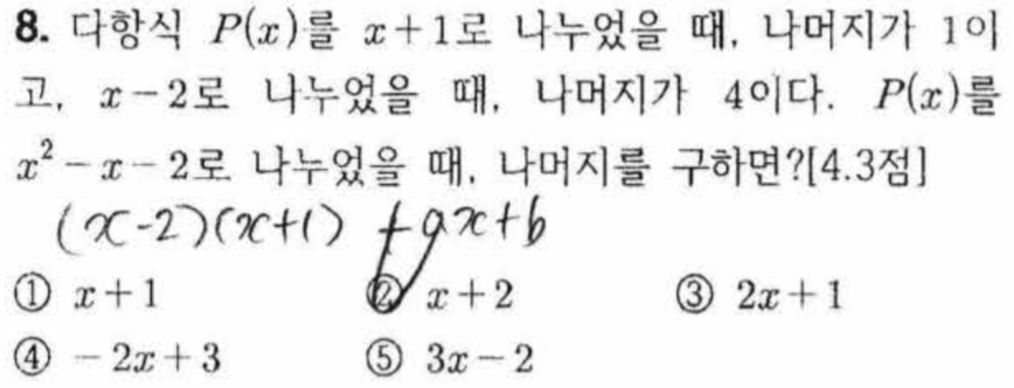 8. 다항식 P(x)를 x+1로 나누었을 때, 나머지가 1이
고, x-2로 나누었을 때, 나머지가 4이다. P(x)를
x²-x-2로 나누었을 때, 나머지를 구하면?[4.3점]
(x-2)(x+1) +ax+b
① x+1 ② x+2 ③ 2x+1
④ -2x+3 ⑤ 3x-2